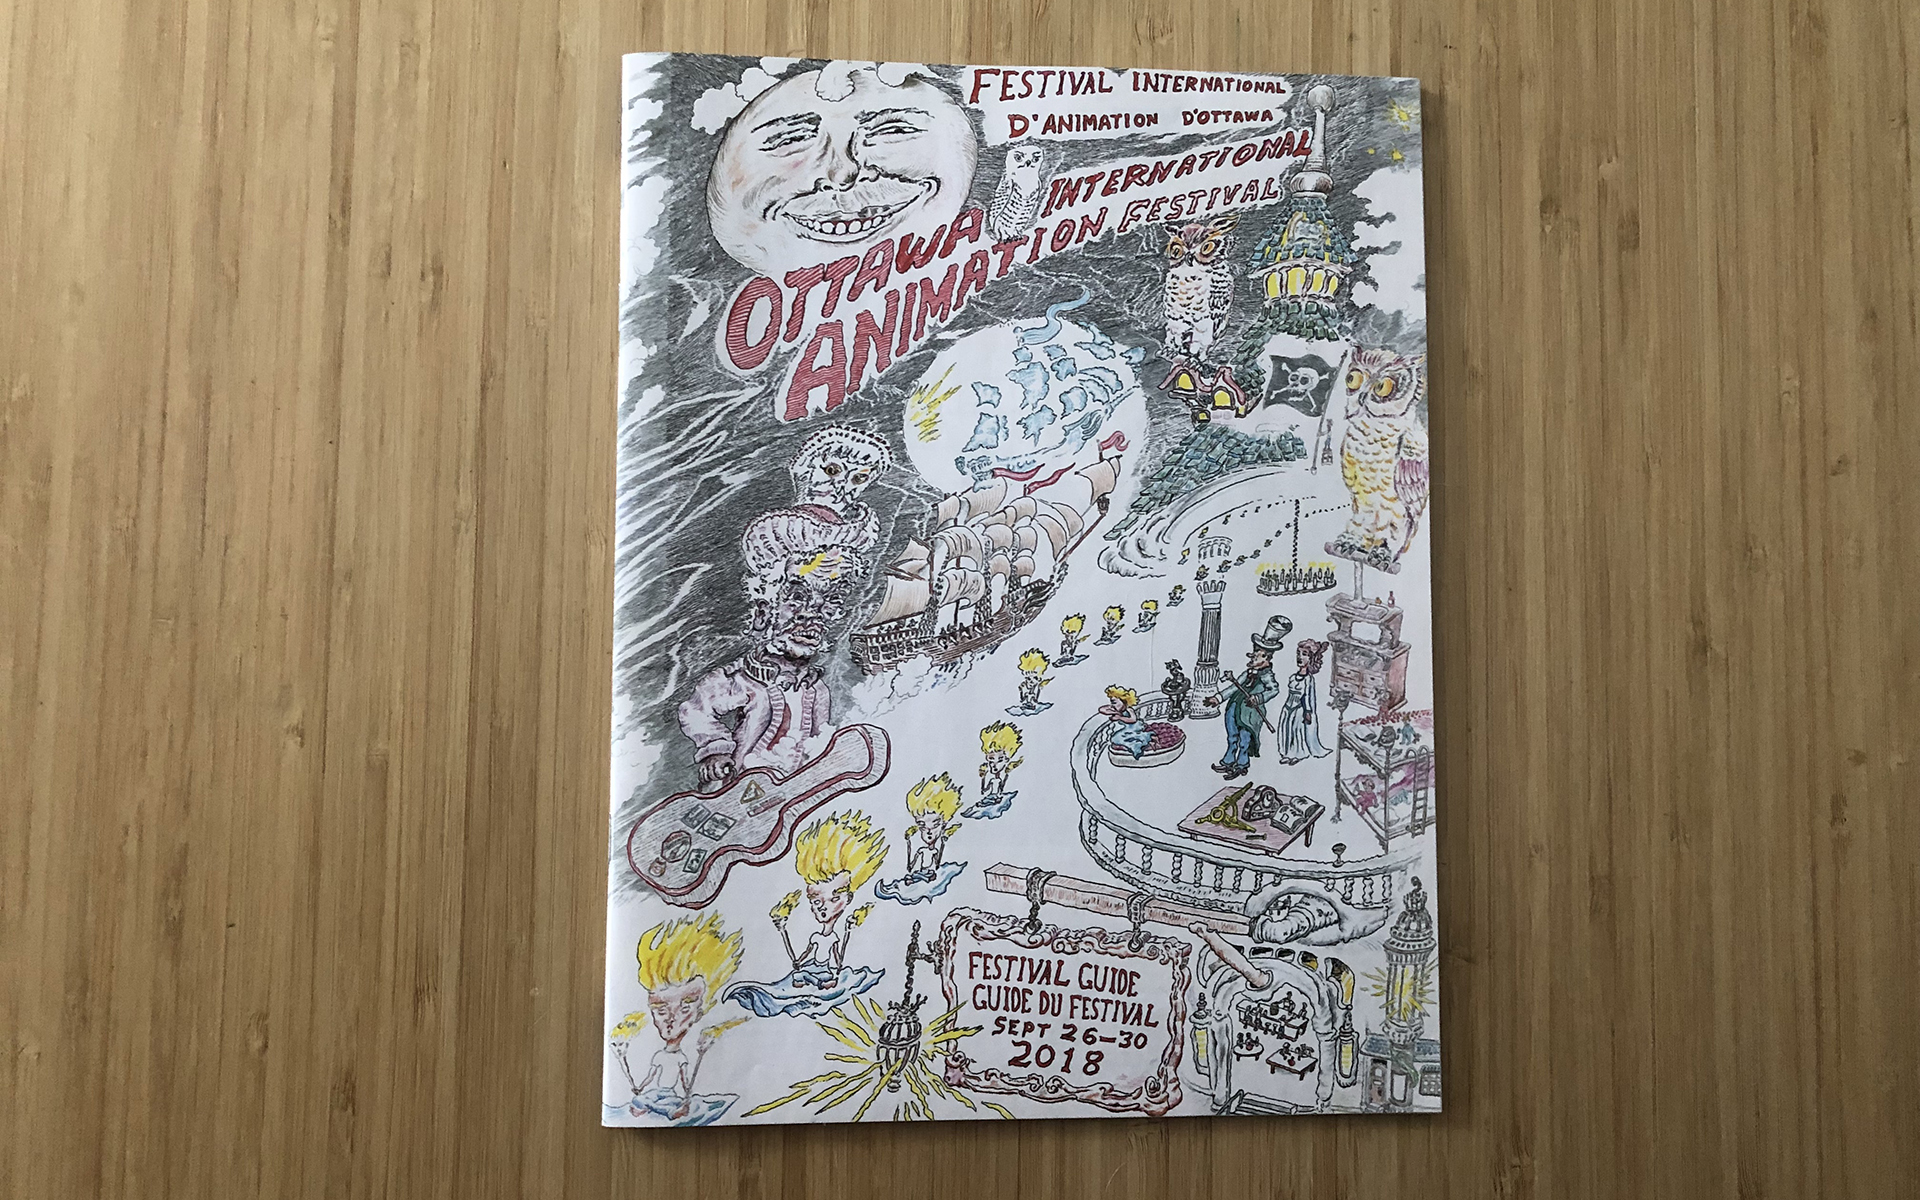 FESTIVAL INTERNATIONAL
D'ANIMATION D'OTTAWA
OTTAWA INTERNATIONAL
ANIMATION FESTIVAL
FESTIVAL GUIDE
GUIDE DU FESTIVAL
SEPT 26-30
2018